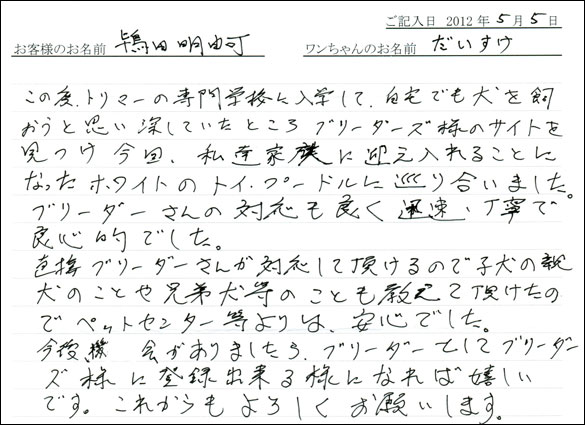 ご記入日 2012年5月5日
お客様のお名前 嶋田明由可 ワンちゃんのお名前 だいすけ
この度、トリマーの専門学校に入学して、自宅でも犬を飼
おうと思い深していたところブリーダーズ様のサイトを
見つけ今回、私達家族に迎え入れることに
なったホワイトのトイ・プードルに巡り合いました。
ブリーダーさんの対応も良く迅速、丁寧で
良心的でした。
直接ブリーダーさんが対応して頂けるので子犬の親
犬のことや兄弟犬等のことも教えて頂けたの
でペットセンター等よりは、安心でした。
今後、機会がありましたら、ブリーダーとしてブリーダー
ズ様に登録出来る様になれば嬉しい
です。これからもよろしくお願いします。